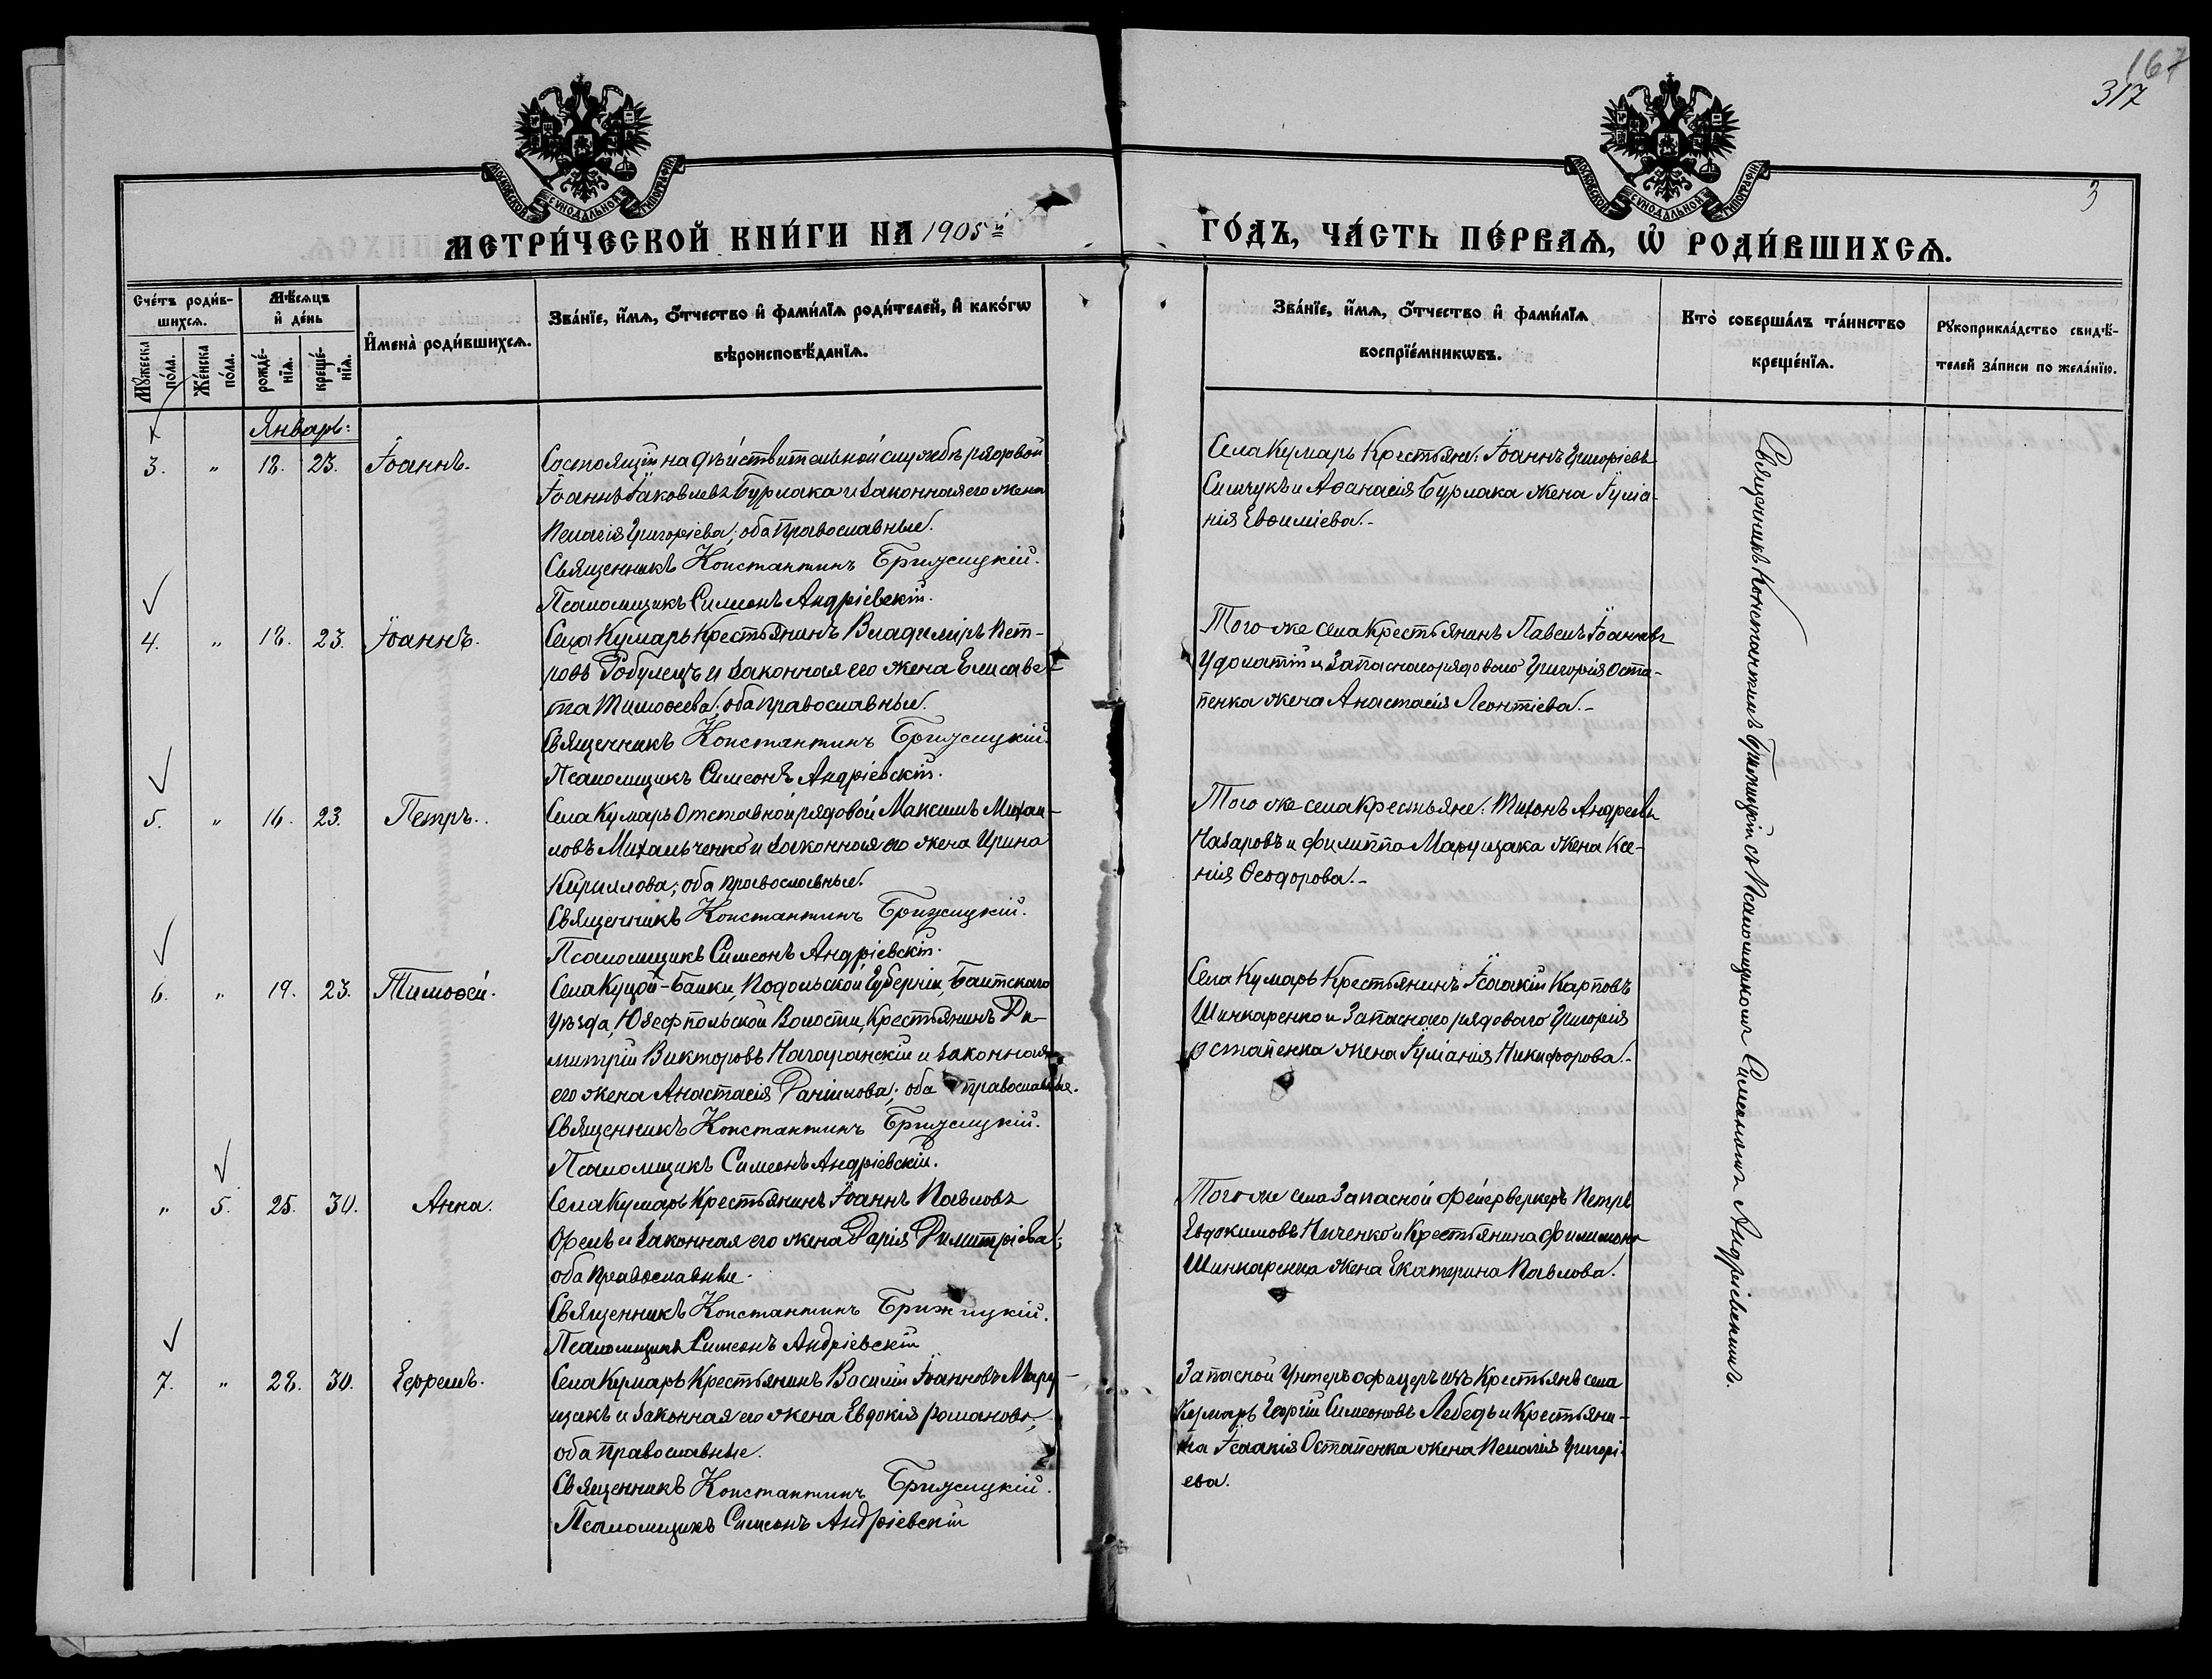 167
317
3
МОСКОВСКОЙ СѴНОДАЛЬНОЙ ТИПОГРАФІИ
МОСКОВСКОЙ СѴНОДАЛЬНОЙ ТИПОГРАФІИ
МЕТРИ́ЧЕСКОЙ КНИ́ГИ НА 1905й ГО́ДЪ, ЧА́СТЬ ПЕ́РВАѦ, Ѽ РОДИ́ВШИХСѦ.
Сче́тъ роди́в-
шихсѧ.
Мꙋ́жеска по́ла.
Же́нска по́ла.
Мѣ́сѧцъ
и҆ де́нь
рожде́-
нїѧ.
креще́-
нїѧ.
И҆мена̀ роди́вшихсѧ.
Зва́нїе, и҆́мѧ, ѻ҆́тчество и҆ фами́лїѧ роди́телей, и҆ како́гѡ
вѣроисповѣ́данїѧ.
Зва́нїе, и҆́мѧ, ѻ҆́тчество и҆ фами́лїѧ
воспрїе́мникѡвъ.
Кто̀ соверша́лъ та́инство
креще́нїѧ.
Рꙋкоприкла́дство свидѣ́-
телей за́писи по жела́нїю.
Январь:
3. " 18. 23. Іоаннъ.
Состоящій на дѣйствительной службѣ рядовой
Іоаннъ Іаковлевъ Бурлака и законная его жена
Пелагія Григоріева; оба православные.
Священникъ Константинъ Брижицкій.
Псаломщикъ Симеонъ Андріевскій.
Села Кумарь Крестьяне: Іоаннъ Григоріевъ
Симчукъ и Аѳанасія Бурлака жена Іуліа-
нія Евѳиміева.-
4. " 18. 23. Іоаннъ.
Села Кумарь Крестьянинъ Владиміръ Пет-
ровъ Робулецъ и законная его жена Елисаве-
та Тимоѳеева; оба православные.
Священникъ Константинъ Брижицкій.
Псаломщикъ Симеонъ Андріевскій.
Того же села Крестьянинъ Павелъ Іоанновъ
Удолатій и Запаснаго рядового Григорія Оста-
пенка жена Анастасія Леонтіева.-
5. " 16. 23. Петръ.
Села Кумарь Отставной рядовой Максимъ Михаи-
ловъ Михальченко и законная его жена Ирина
Кириллова; оба православные.
Священникъ Константинъ Брижицкій.
Псаломщикъ Симеонъ Андріевскій.
Того же села Крестьяне: Тихонъ Андреевъ
Назаровъ и Филиппа Марущака жена Ксе-
нія Ѳеодорова.-
6. " 19. 23. Тимоѳей.
Села Куцой-Балки, Подольской Губерніи, Балтскаго
Уѣзда, Юзефпольской Волости, Крестьянинъ Ди-
митрій Викторовъ Нагорянскій и законная
его жена Анастасія Даніилова; оба православные.
Священникъ Константинъ Брижицкій.
Псаломщикъ Симеонъ Андріевскій.
Села Кумарь Крестьянинъ Ісаакій Карповъ
Шинкаренко и Запаснаго рядоваго Григорія
Остапенка жена Іуліанія Никифорова.-
" 5. 25. 30. Анна.
Села Кумарь Крестьянинъ Іоаннъ Павловъ
Орелъ и законная его жена Дарія Димитріева;
оба православные.
Священникъ Константинъ Брижицкій.
Псаломщикъ Симеонъ Андріевскій
Того же села Запасной фейерверкеръ Петръ
Евдокимовъ Ниченко и Крестьянина Филимона
Шинкаренка жена Екатерина Павлова.
7. " 28. 30. Ефремъ.
Села Кумарь Крестьянинъ Василій Іоанновъ Мару-
щакъ и законная его жена Евдокія Романова;
оба православные.
Священникъ Константинъ Брижицкій.
Псаломщикъ Симеонъ Андріевскій
Запасной Унтеръ офицеръ изъ Крестьянъ села
Кумарь Георгій Симеоновъ Лебедь и Крестьяни-
на Ісаакія Остапенка жена Пелагія Григорі-
ева.
Священникъ Константинъ Брижицкій съ Псаломщикомъ Симеономъ Андріевскимъ.